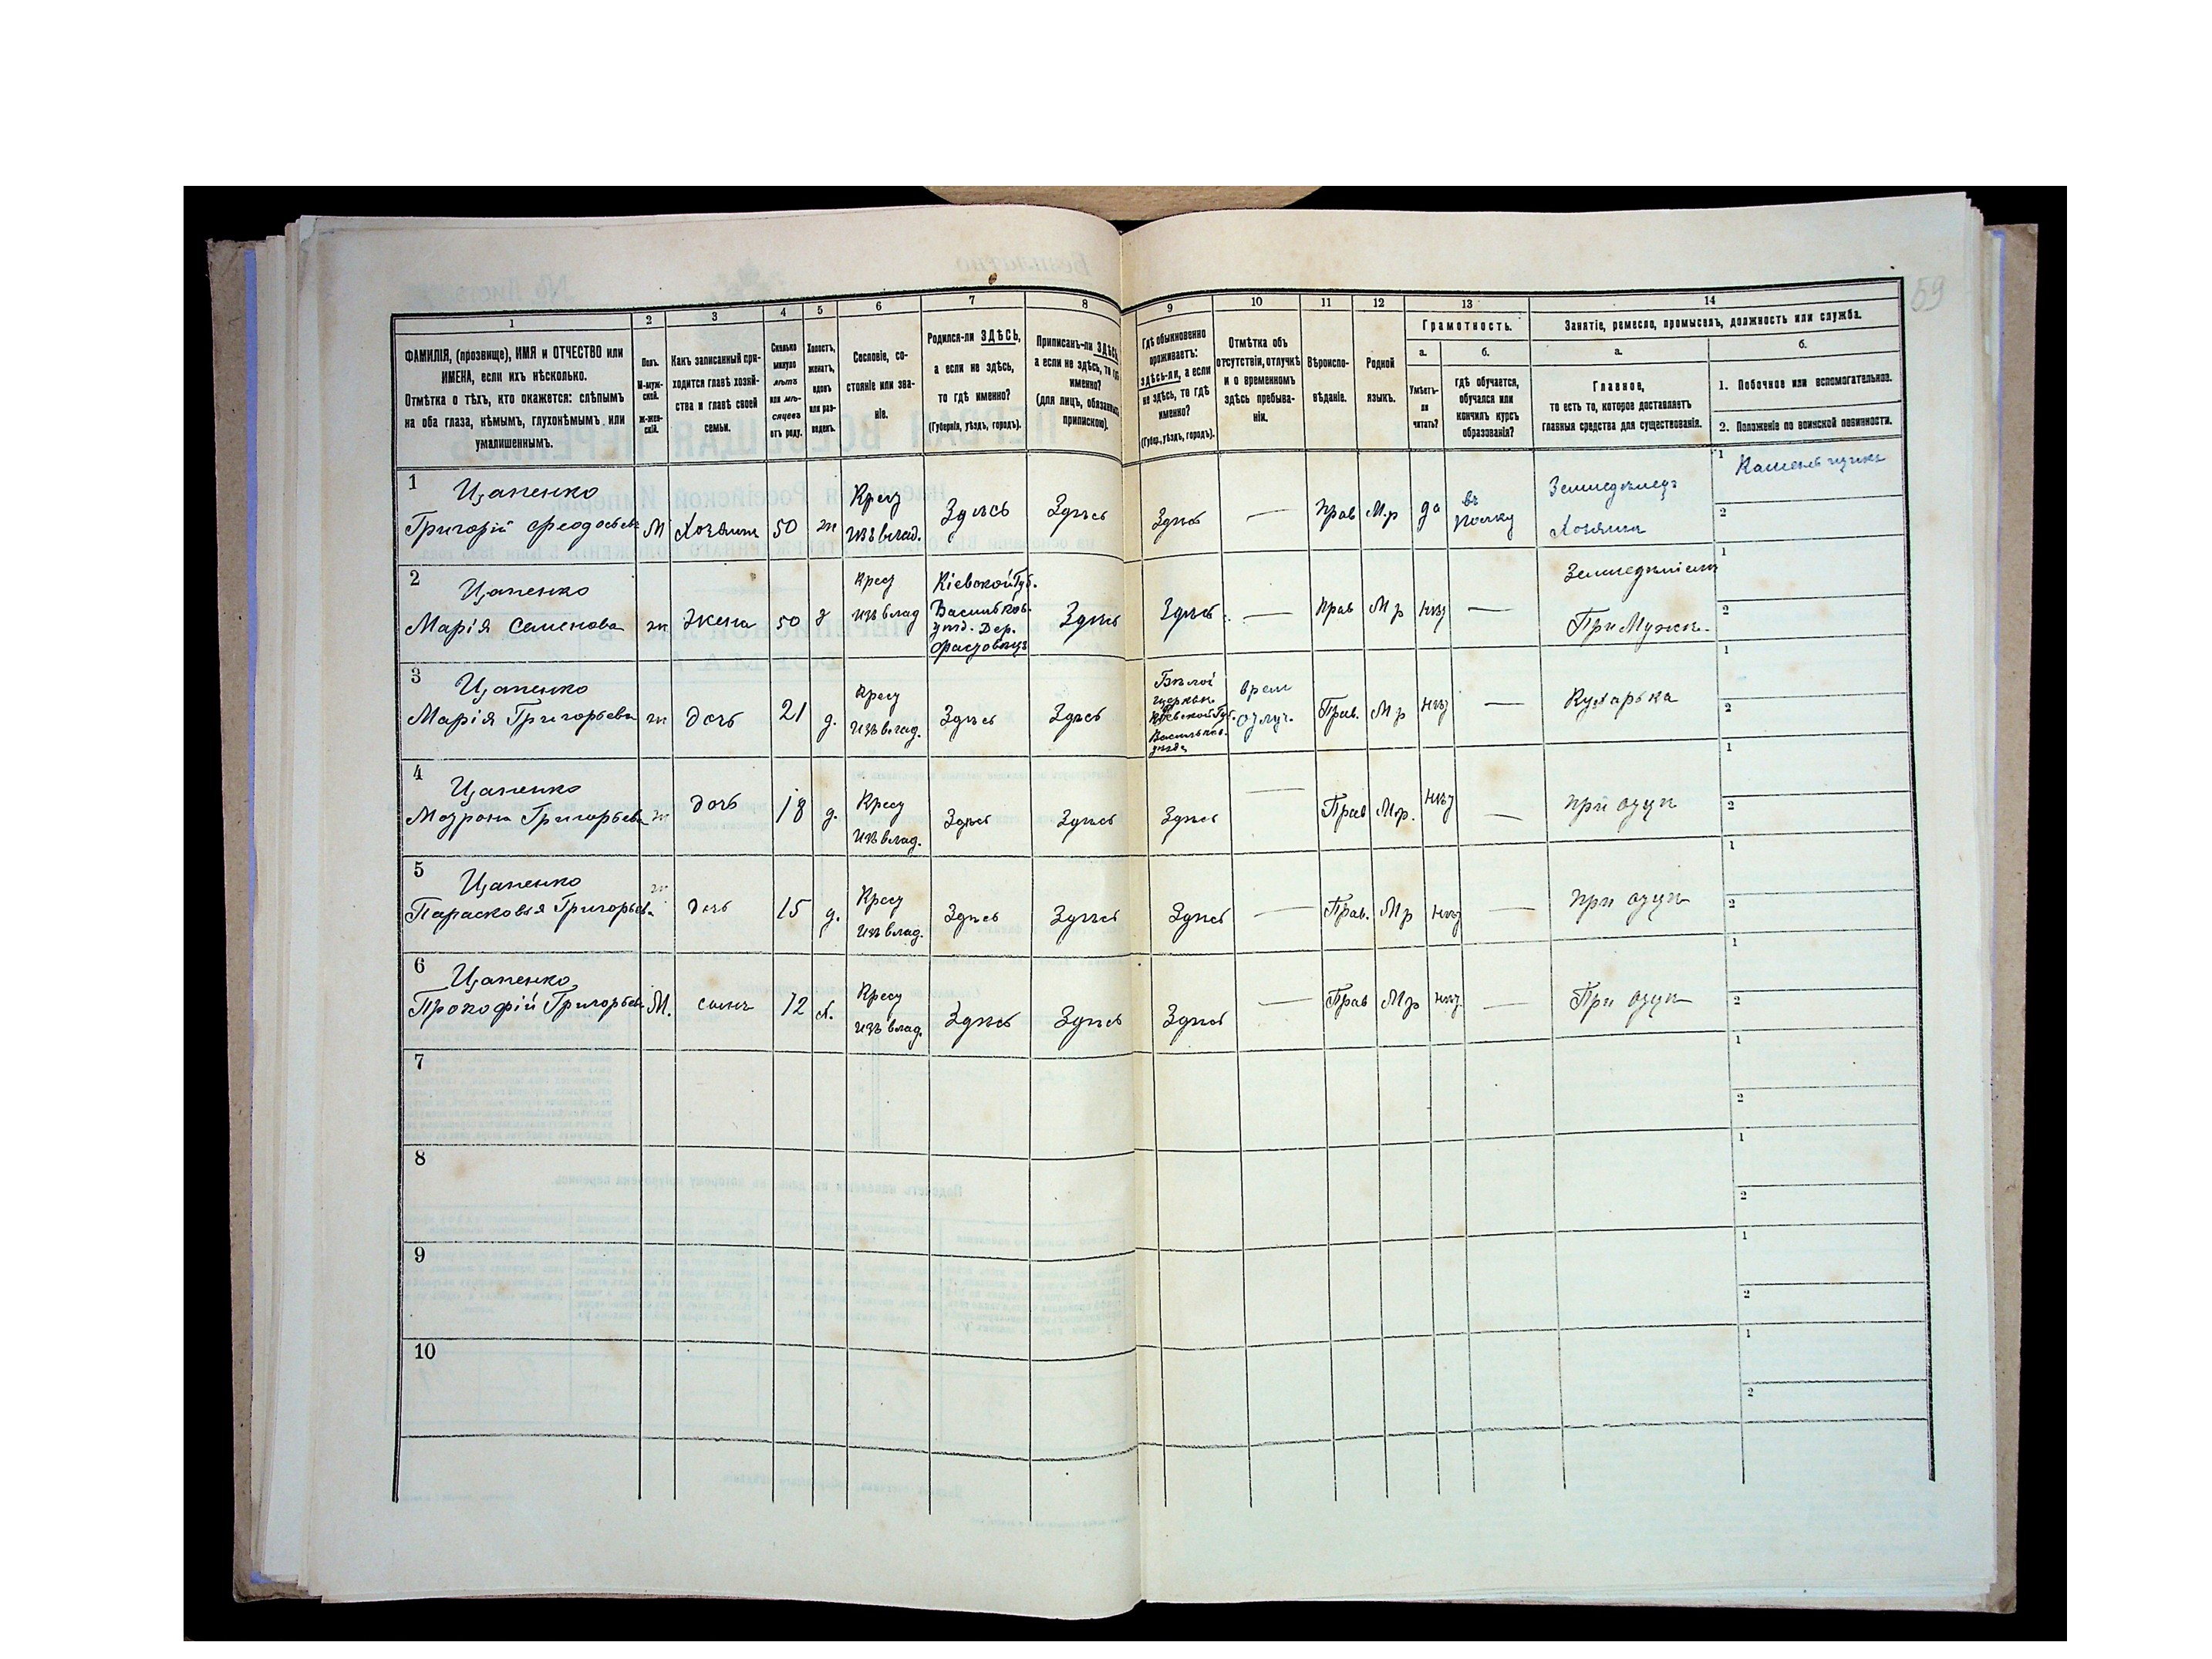 59
1 2 3 4 5 6 7 8 9 10 11 12 13 14
ФАМИЛІЯ, (прозвище), ИМЯ и ОТЧЕСТВО или
ИМЕНА, если ихъ нѣсколько.
Отмѣтка о тѣхъ, кто окажется: слѣпымъ
на оба глаза, нѣмымъ, глухонѣмымъ или
умалишеннымъ.
Полъ.
М-муж-
ской.
ж-жен-
скій.
Какъ записанный при-
ходится главѣ хозяй-
ства и главѣ своей
семьи.
Сколько
минуло
лѣтъ
или мѣ-
сяцевъ
отъ роду.
Холостъ,
женатъ,
вдовъ
или раз-
веденъ.
Сословіе, со-
стояніе или зва-
ніе.
Родился-ли ЗДѢСЬ,
а если не здѣсь,
то гдѣ именно?
(Губернія, уѣздъ, городъ).
Приписанъ-ли ЗДѢСЬ
а если не здѣсь, то гдѣ
именно?
(для лицъ, обязанныхъ
припискою).
Гдѣ обыкновенно
проживаетъ:
здѣсь-ли, а если
не здѣсь, то гдѣ
именно?
(Губер., уѣздъ, городъ).
Отмѣтка объ
отсутствіи, отлучкѣ
и о временномъ
здѣсь пребыва-
ніи.
Вѣроиспо-
вѣданіе.
Родной
языкъ.
Грамотность.
а. б.
Умѣетъ-
ли
читать?
гдѣ обучается,
обучался или
кончилъ курсъ
образованія?
Занятіе, ремесло, промыселъ, должность или служба.
а. б.
Главное,
то есть то, которое доставляетъ
главныя средства для существованія.
1. Побочное или вспомогательное.
2. Положеніе по воинской повинности.
1 Цапенко
Григорій Феодосьевъ М Хозяинъ 50 ж Крест изъ влад. Здѣсь Здѣсь Здѣсь — Прав М.р да въ полку Земледѣлецъ Хозяинъ 1 Каменьщикъ 2
2 Цапенко
Марія Семенова ж Жена 50 з Крест изъ влад Кіевской Губ. Васильков. уѣзд. Дер. Фастовецъ Здѣсь Здѣсь — Прав М р нѣт — При Мужѣ. 1 2
3 Цапенко
Марія Григорьева ж дочь 21 д. Крест изъ влад. Здѣсь Здѣсь Бѣлой церкви Кіевской Губ. Васильков. уѣзда врем отлуч. Прав. М р нѣт — Кухарька 1 2
4 Цапенко
Мотрона Григорьева ж дочь 18 д. Крест изъ влад. Здѣсь Здѣсь Здѣсь — Прав М.р. нѣт — при отцѣ 1 2
5 Цапенко
Парасковья Григорьева ж дочь 15 д. Крест изъ влад. Здѣсь Здѣсь Здѣсь — Прав. М р нѣт — при отцѣ 1 2
6 Цапенко
Прокофій Григорьевъ М. сынъ 12 х. Крест изъ влад. Здѣсь Здѣсь Здѣсь — Прав М р нѣт. — При отцѣ 1 2
7 1 2
8 1 2
9 1 2
10 1 2